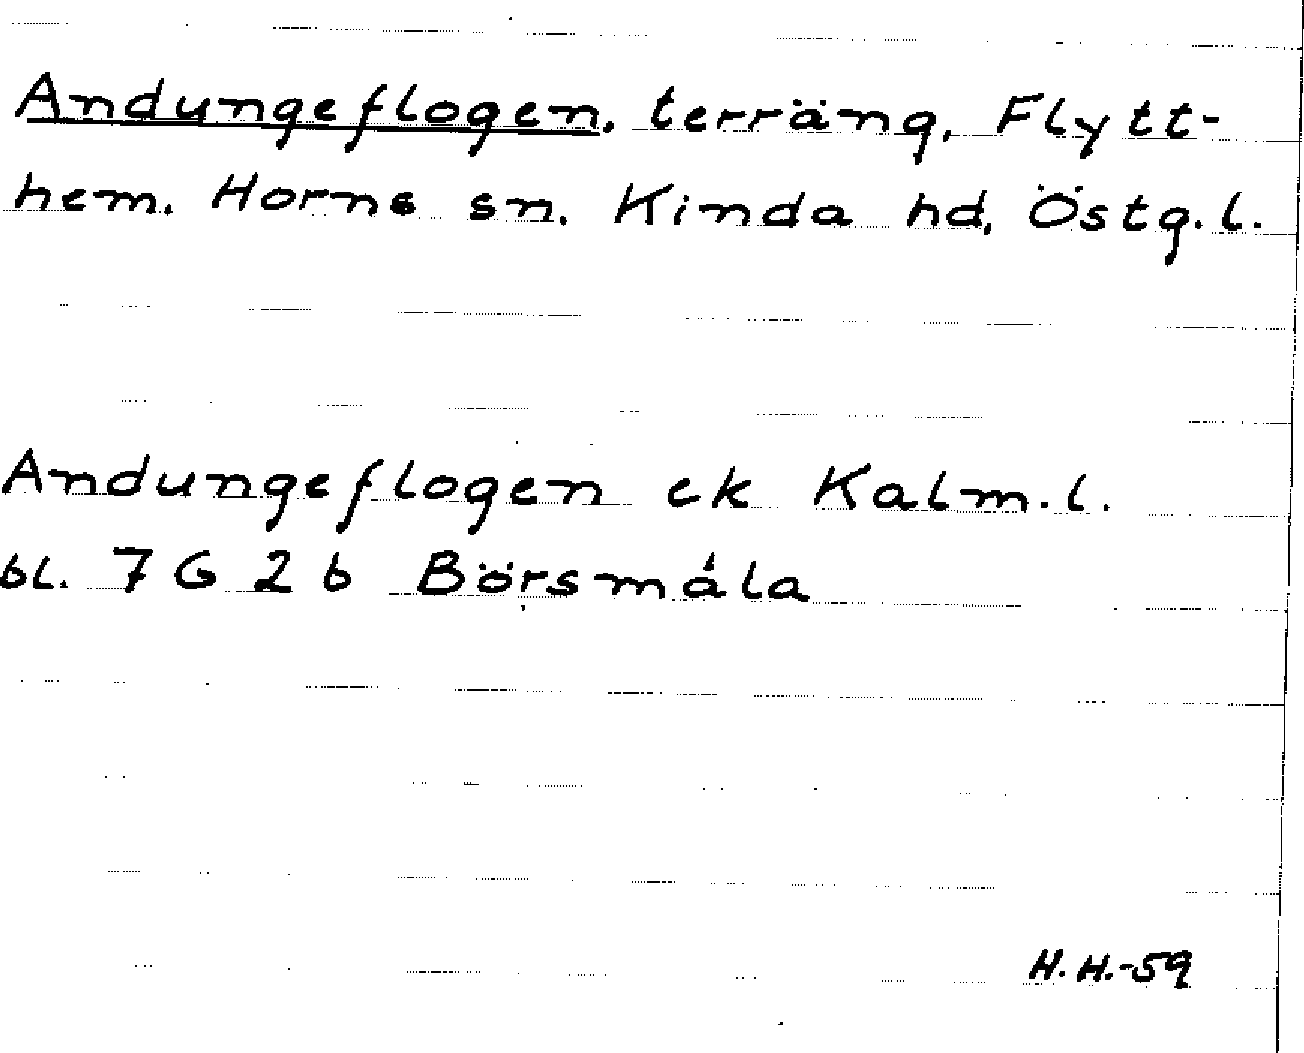 Andungeflogen, terräng, Flytt-
hem. Horns sn. Kinda hd, Östg.l.
Andungeflogen ek Kalm.l.
bl. 7 G 2 b Börsmåla
H.H.-59